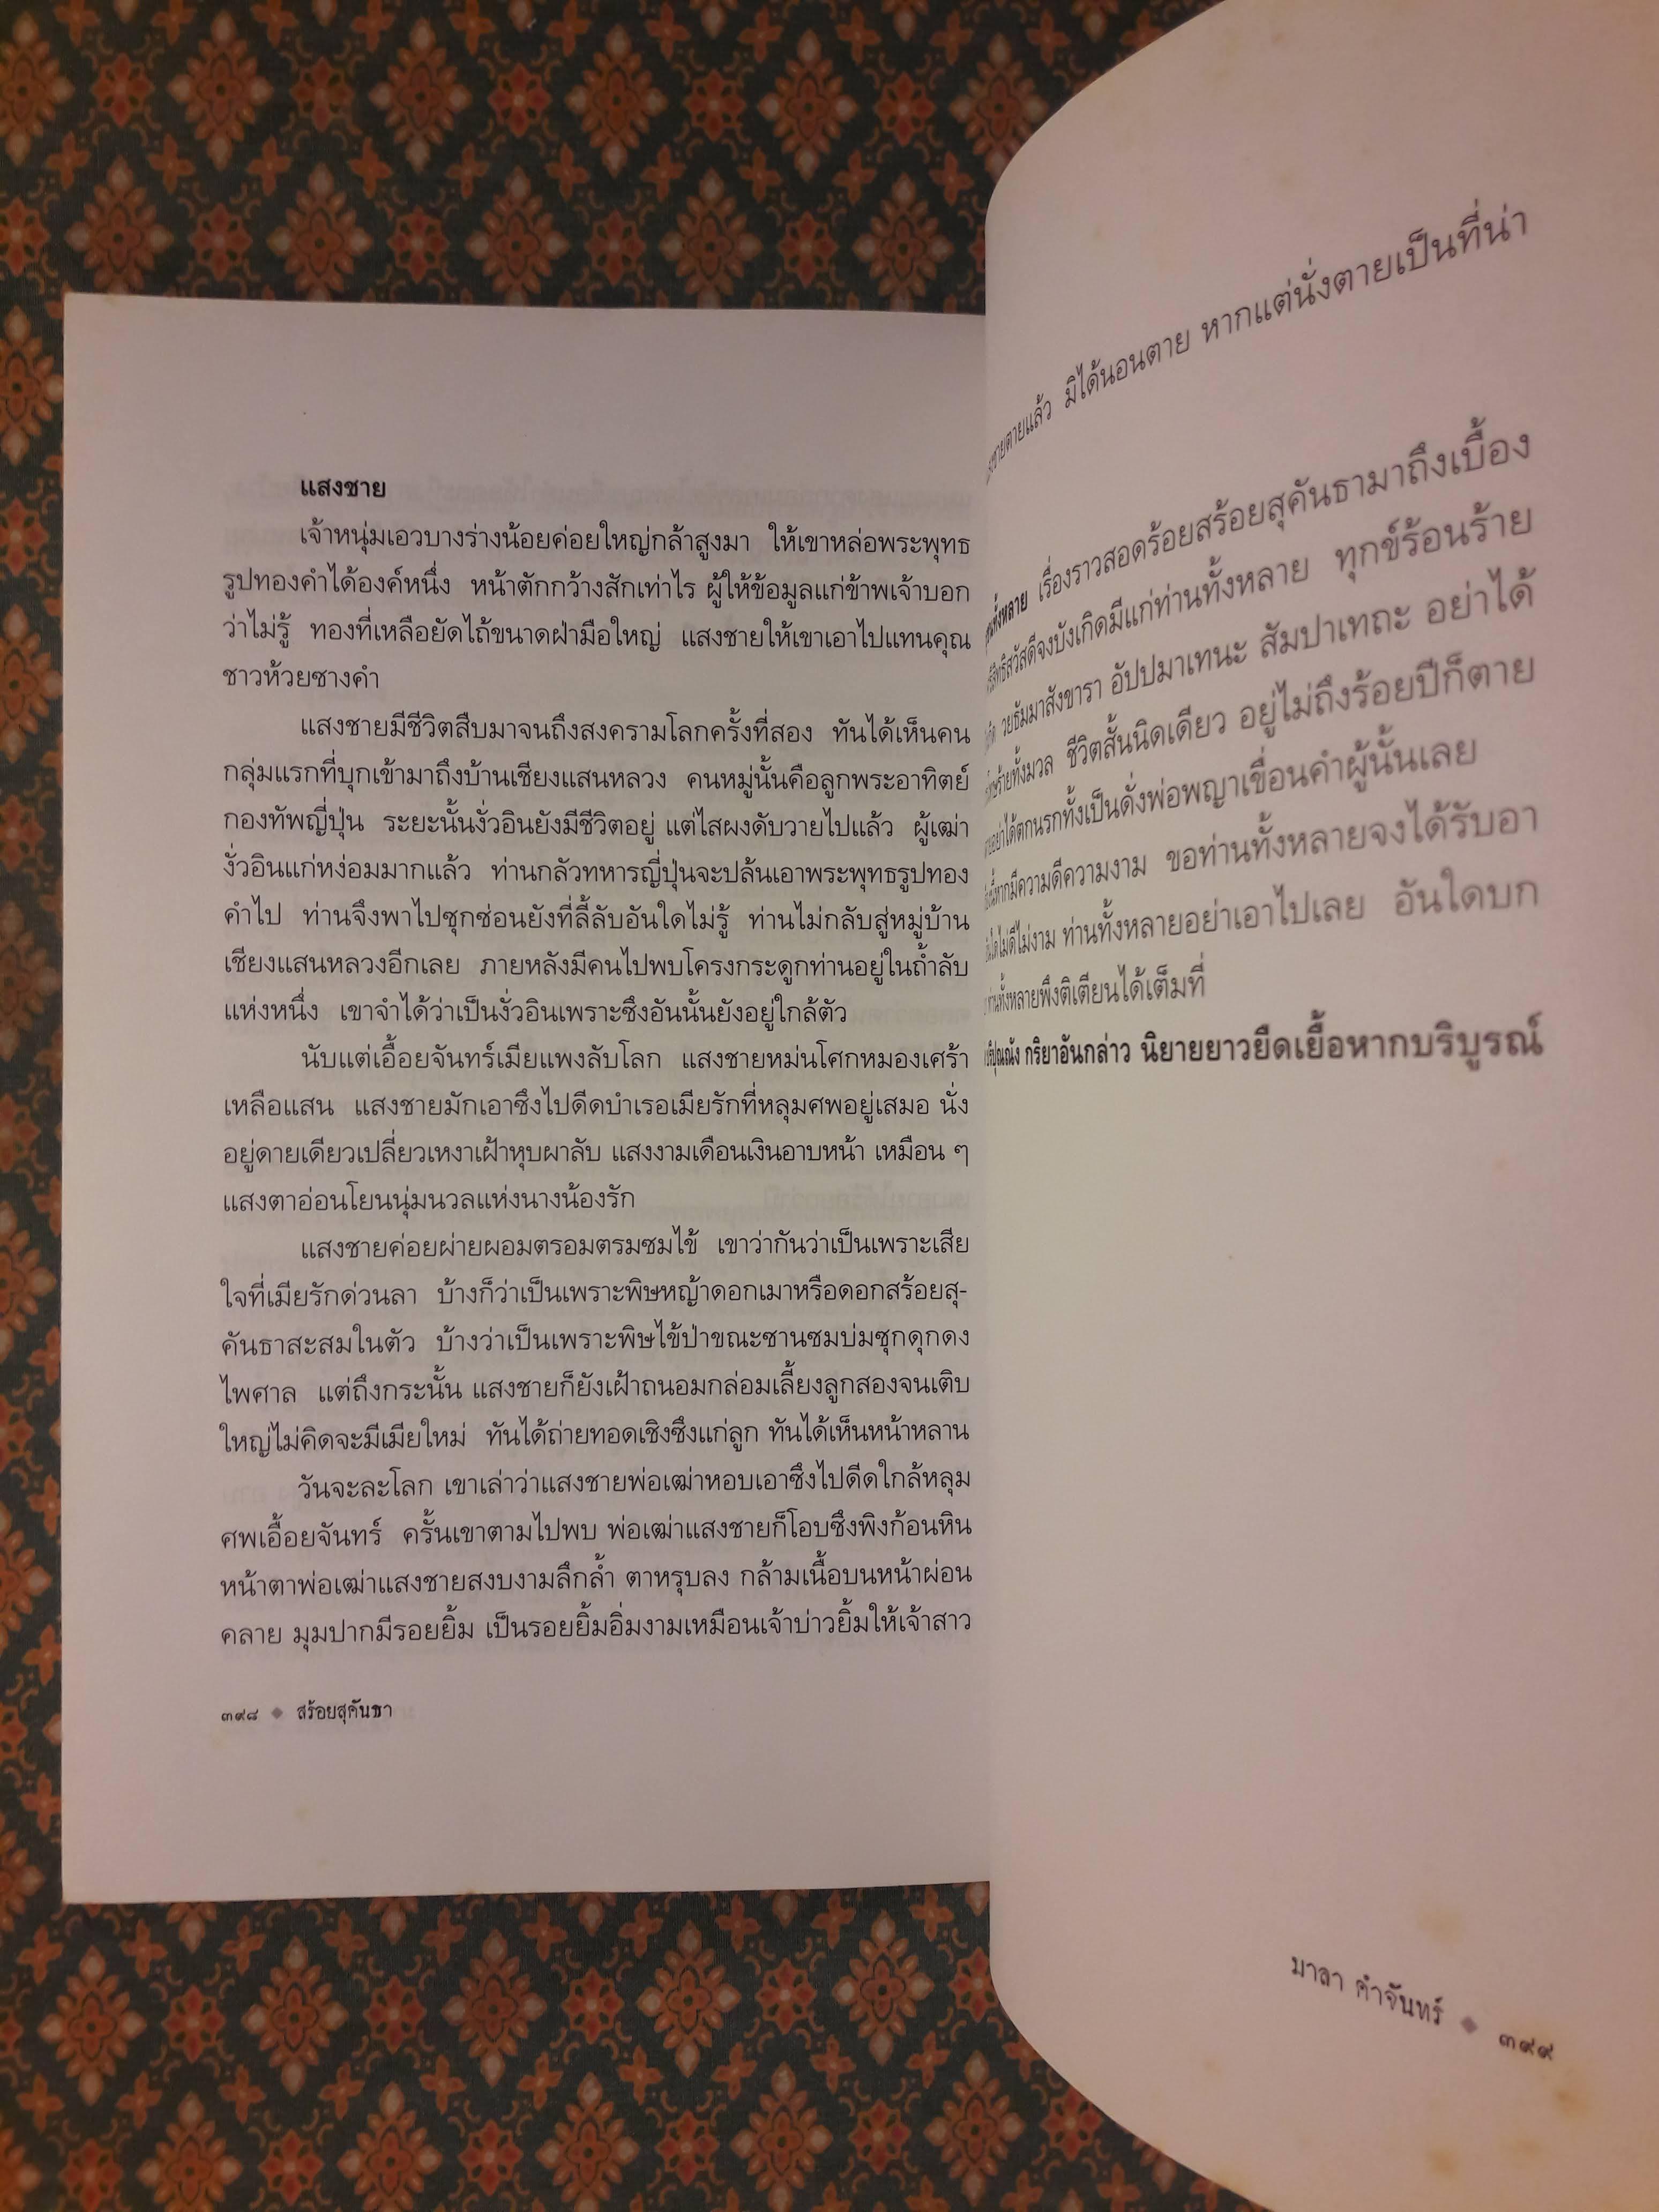 แสงชาย
เจ้าหนุ่มเอวบางร่างน้อยค่อยใหญ่กล้าสูงมา ให้เขาหล่อพระพุทธ
รูปทองคำได้องค์หนึ่ง หน้าตักกว้างสักเท่าไร ผู้ให้ข้อมูลแก่ข้าพเจ้าบอก
ว่าไม่รู้ ทองที่เหลือยัดไถ้ขนาดฝ่ามือใหญ่ แสงชายให้เขาเอาไปแทนคุณ
ชาวห้วยซางคำ
แสงชายมีชีวิตสืบมาจนถึงสงครามโลกครั้งที่สอง ทันได้เห็นคน
กลุ่มแรกที่บุกเข้ามาถึงบ้านเชียงแสนหลวง คนหมู่นั้นคือลูกพระอาทิตย์
กองทัพญี่ปุ่น ระยะนั้นงั่วอินยังมีชีวิตอยู่ แต่ไสผงดับวายไปแล้ว ผู้เฒ่า
งั่วอินแก่หง่อมมากแล้ว ท่านกลัวทหารญี่ปุ่นจะปล้นเอาพระพุทธรูปทอง
คำไป ท่านจึงพาไปซุกซ่อนยังที่ลี้ลับอันใดไม่รู้ ท่านไม่กลับสู่หมู่บ้าน
เชียงแสนหลวงอีกเลย ภายหลังมีคนไปพบโครงกระดูกท่านอยู่ในถ้ำลับ
แห่งหนึ่ง เขาจำได้ว่าเป็นงั่วอินเพราะซึงอันนั้นยังอยู่ใกล้ตัว
นับแต่เอื้อยจันทร์เมียแพงลับโลก แสงชายหม่นโศกหมองเศร้า
เหลือแสน แสงชายมักเอาซึงไปดีดบำเรอเมียรักที่หลุมศพอยู่เสมอ นั่ง
อยู่ดายเดียวเปลี่ยวเหงาเฝ้าหุบผาลับ แสงงามเดือนเงินอาบหน้า เหมือน ๆ
แสงตาอ่อนโยนนุ่มนวลแห่งนางน้องรัก
แสงชายค่อยผ่ายผอมตรอมตรมซมไข้ เขาว่ากันว่าเป็นเพราะเสีย
ใจที่เมียรักด่วนลา บ้างก็ว่าเป็นเพราะพิษหญ้าดอกเมาหรือดอกสร้อยสุ-
คันธาสะสมในตัว บ้างว่าเป็นเพราะพิษไข้ป่าขณะซานซมบ่มซุกดุกดง
ไพศาล แต่ถึงกระนั้น แสงชายก็ยังเฝ้าถนอมกล่อมเลี้ยงลูกสองจนเติบ
ใหญ่ไม่คิดจะมีเมียใหม่ ทันได้ถ่ายทอดเชิงซึงแก่ลูก ทันได้เห็นหน้าหลาน
วันจะละโลก เขาเล่าว่าแสงชายพ่อเฒ่าหอบเอาซึงไปดีดใกล้หลุม
ศพเอื้อยจันทร์ ครั้นเขาตามไปพบ พ่อเฒ่าแสงชายก็โอบซึงพิงก้อนหิน
หน้าตาพ่อเฒ่าแสงชายสงบงามลึกล้ำ ตาหรุบลง กล้ามเนื้อบนหน้าผ่อน
คลาย มุมปากมีรอยยิ้ม เป็นรอยยิ้มอิ่มงามเหมือนเจ้าบ่าวยิ้มให้เจ้าสาว
๓๙๘ ◆ สร้อยสุคันธา
ชายตายแล้ว มิได้นอนตาย หากแต่นั่งตายเป็นที่น่า
ทั้งหลาย เรื่องราวสอดร้อยสร้อยสุคันธามาถึงเบื้อง
สวัสดีจงบังเกิดมีแก่ท่านทั้งหลาย ทุกข์ร้อนร้าย
วยธัมมาสังขารา อัปปมาเทนะ สัมปาเทถะ อย่าได้
ร้ายทั้งมวล ชีวิตสั้นนิดเดียว อยู่ไม่ถึงร้อยปีก็ตาย
อย่าได้ตกนรกทั้งเป็นดั่งพ่อพญาเขื่อนคำผู้นั้นเลย
หากมีความดีความงาม ขอท่านทั้งหลายจงได้รับอา
ไม่ดีไม่งาม ท่านทั้งหลายอย่าเอาไปเลย อันใดบก
ท่านทั้งหลายพึงติเตียนได้เต็มที่
กริยาอันกล่าว นิยายยาวยืดเยื้อหากบริบูรณ์
มาลา คำจันทร์ ◆ ๓๙๙